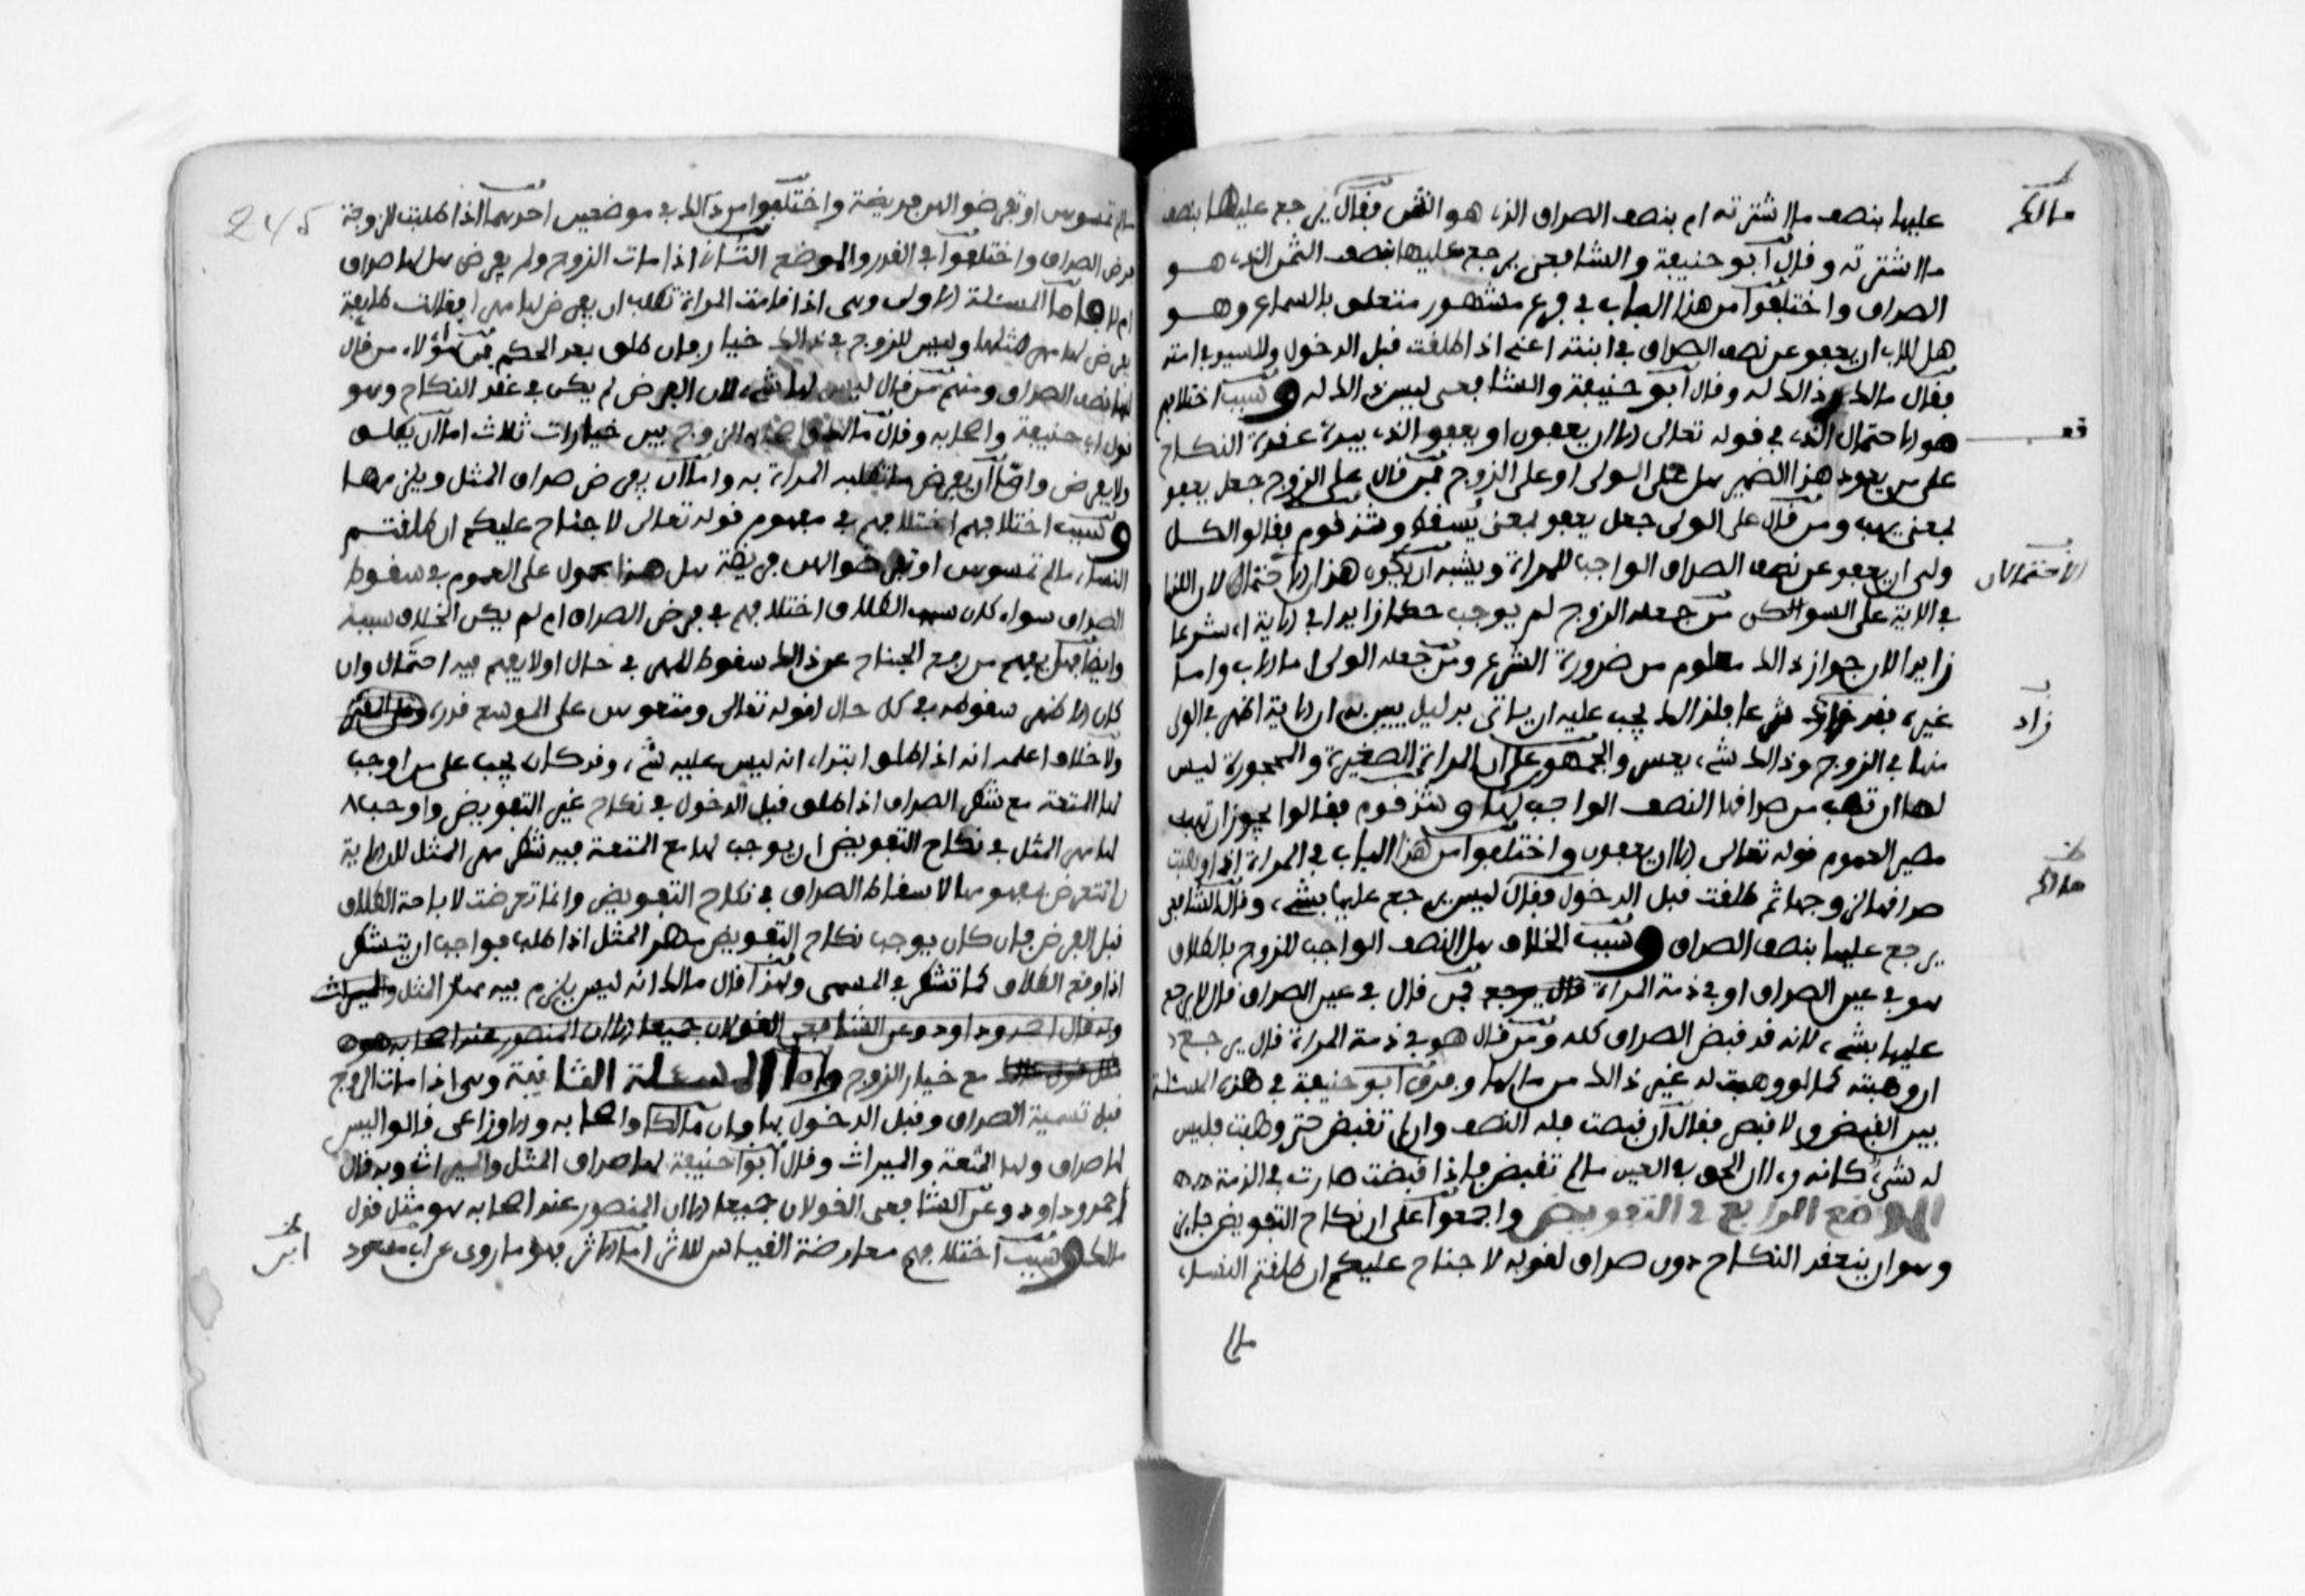 عليها بنصف ما اشترته ام بنصف الصداق الذي هو الثمن فقال يرجع عليها بنصف
مالك
ما اشترته وقال ابو حنيفة والشافعي يرجع عليها بنصف الثمن الذي هو
الصداق واختلفوا من هذا الباب في فرع مشهور متعلق بالسماع وهو
هل للاب ان يعفو عن نصف الصداق في ابنته اعني اذا طلقت قبل الدخول وللسيد في امته
فقال مالك ذالك له وقال ابو حنيفة والشافعي ليس ذالك له وسبب اختلافهم
هو الاحتمال الذي في قوله تعالى الا ان يعفون او يعفو الذي بيده عقدة النكاح
قف
على من يعود هذا الضمير هل على الولى او على الزوج فمن قال على الزوج جعل يعفو
بمعنى يهب ومن قال على الولى جعل يعفو بمعنى يسقط وشذ قوم فقالوا لكل
ولى ان يعفو عن نصف الصداق الواجب للمراة ويشبه ان يكون هذا الاحتمال لان اللذا
الاحتمالان
في الاية على السوا لكن من جعله الزوج لم يوجب حكما زايدا في الاية اى شرعا
زايدا لان جواز ذالك معلوم من ضرورة الشرع ومن جعله الولى اما الاب واما
غيره فقد زاد شرعا فلذالك يجب عليه ان ياتى بدليل يبين به ان الاية اظهر في الولى
زاد
منها في الزوج وذالك شيء يعسر والجمهور على ان المراة الصغيرة والمحجورة ليس
لها ان تهب من صداقها النصف الواجب لها وشذ قوم فقالوا يجوز ان تهب
مصيرا لعموم قوله تعالى الا ان يعفون واختلفوا من هذا الباب في المراة اذا وهبت
صداقها لزوجها ثم طلقت قبل الدخول فقال ليس يرجع عليها بشيء وقال الشافعي
مالك
يرجع عليها بنصف الصداق وسبب الخلاف هل النصف الواجب للزوج بالطلاق
هو في عين الصداق او في ذمة المراة قال يرجع فمن قال في عين الصداق قال لا يرجع
عليها بشيء لانه قد قبض الصداق كله ومن قال هو في ذمة المراة قال يرجع
ان وهبته كما لو وهبت له غير ذالك من مالها وفرق ابو حنيفة في هذه المسئلة
بين القبض ولا قبض فقال ان قبضت فله النصف وان لم تقبض حتى وهبت فليس
له شيء كانه راى ان الحق في العين ما لم تقبض فاذا قبضت صارت في الذمة
الموضع الرابع في التفويض واجمعوا على ان نكاح التفويض جايز
وهو ان ينعقد النكاح دون صداق لقوله لا جناح عليكم ان طلقتم النساء
مالم
245
مالم تمسوهن او تفرضوا لهن فريضة واختلفوا من ذالك في موضعين احدهما اذا طلبت الزوجة
فرض الصداق واختلفوا في القدر والموضع الثاني اذا مات الزوج ولم يفرض هل لها صداق
ام لا فاما المسئلة الاولى وهى اذا قامت المراة تطلب ان يفرض لها مهرا فقالت طايفة
يفرض لها مهر مثلها وليس للزوج في ذالك خيار فان طلق بعد الحكم فمن هؤلاء من قال
لها نصف الصداق ومنهم من قال ليس لها شيء لان الفرض لم يكن في عقد النكاح وهو
قول ابى حنيفة واصحابه وقال مالك واصحابه الزوج بين خيارات ثلاث اما ان يطلق
ولا يفرض واما ان يفرض ما تطلبه المراة به واما ان يفرض صداق المثل ويلزمها
وسبب اختلافهم اختلافهم في مفهوم قوله تعالى لا جناح عليكم ان طلقتم
النساء مالم تمسوهن او تفرضوا لهن فريضة هل هذا محمول على العموم في سقوط
الصداق سواء كان سبب الطلاق اختلافهم في فرض الصداق ام لم يكن الخلاف سببه
وايضا فهل يفهم من رفع الجناح عن ذالك سقوط المهر في حال او لا يفهم فيه احتمال وان
كان الاظهر سقوطه في كل حال لقوله تعالى ومتعوهن على الموسع قدره
ولا خلاف اعلمه انه اذا طلق ابتداء انه ليس عليه شيء وقد كان يجب على من اوجب
لها المتعة مع شطر الصداق اذا طلق قبل الدخول في نكاح غير التفويض واوجب
لها مهر المثل في نكاح التفويض ان يوجب لها مع المتعة فيه شطر مهر المثل لان الاية
لم تتعرض بمفهومها لاسقاط الصداق في نكاح التفويض وانما تعرضت لاباحة الطلاق
قبل الفرض فان كان يوجب نكاح التفويض مهر المثل اذا طلب فواجب ان يتشطر
اذا وقع الطلاق كما تشطر في المسمى ولهذا قال مالك انه ليس يلزم فيه مهر المثل والميراث
وبه قال احمد وداود وعن الشافعي القولان جميعا الا ان المنصور عند اصحابه هو
مثل قول مالك مع خيار الزوج واما المسئلة الثانية وهى اذا مات الزوج
قبل تسمية الصداق وقبل الدخول بها فان مالكا واصحابه والاوزاعى قالوا ليس
لها صداق ولها المتعة والميراث وقال ابو حنيفة لها صداق المثل والميراث وبه قال
احمد وداود وعن الشافعي القولان جميعا الا ان المنصور عند اصحابه هو مثل قول
مالك وسبب اختلافهم معارضة القياس للاثر اما الاثر فهو ما روى عن ابن مسعود
ابن